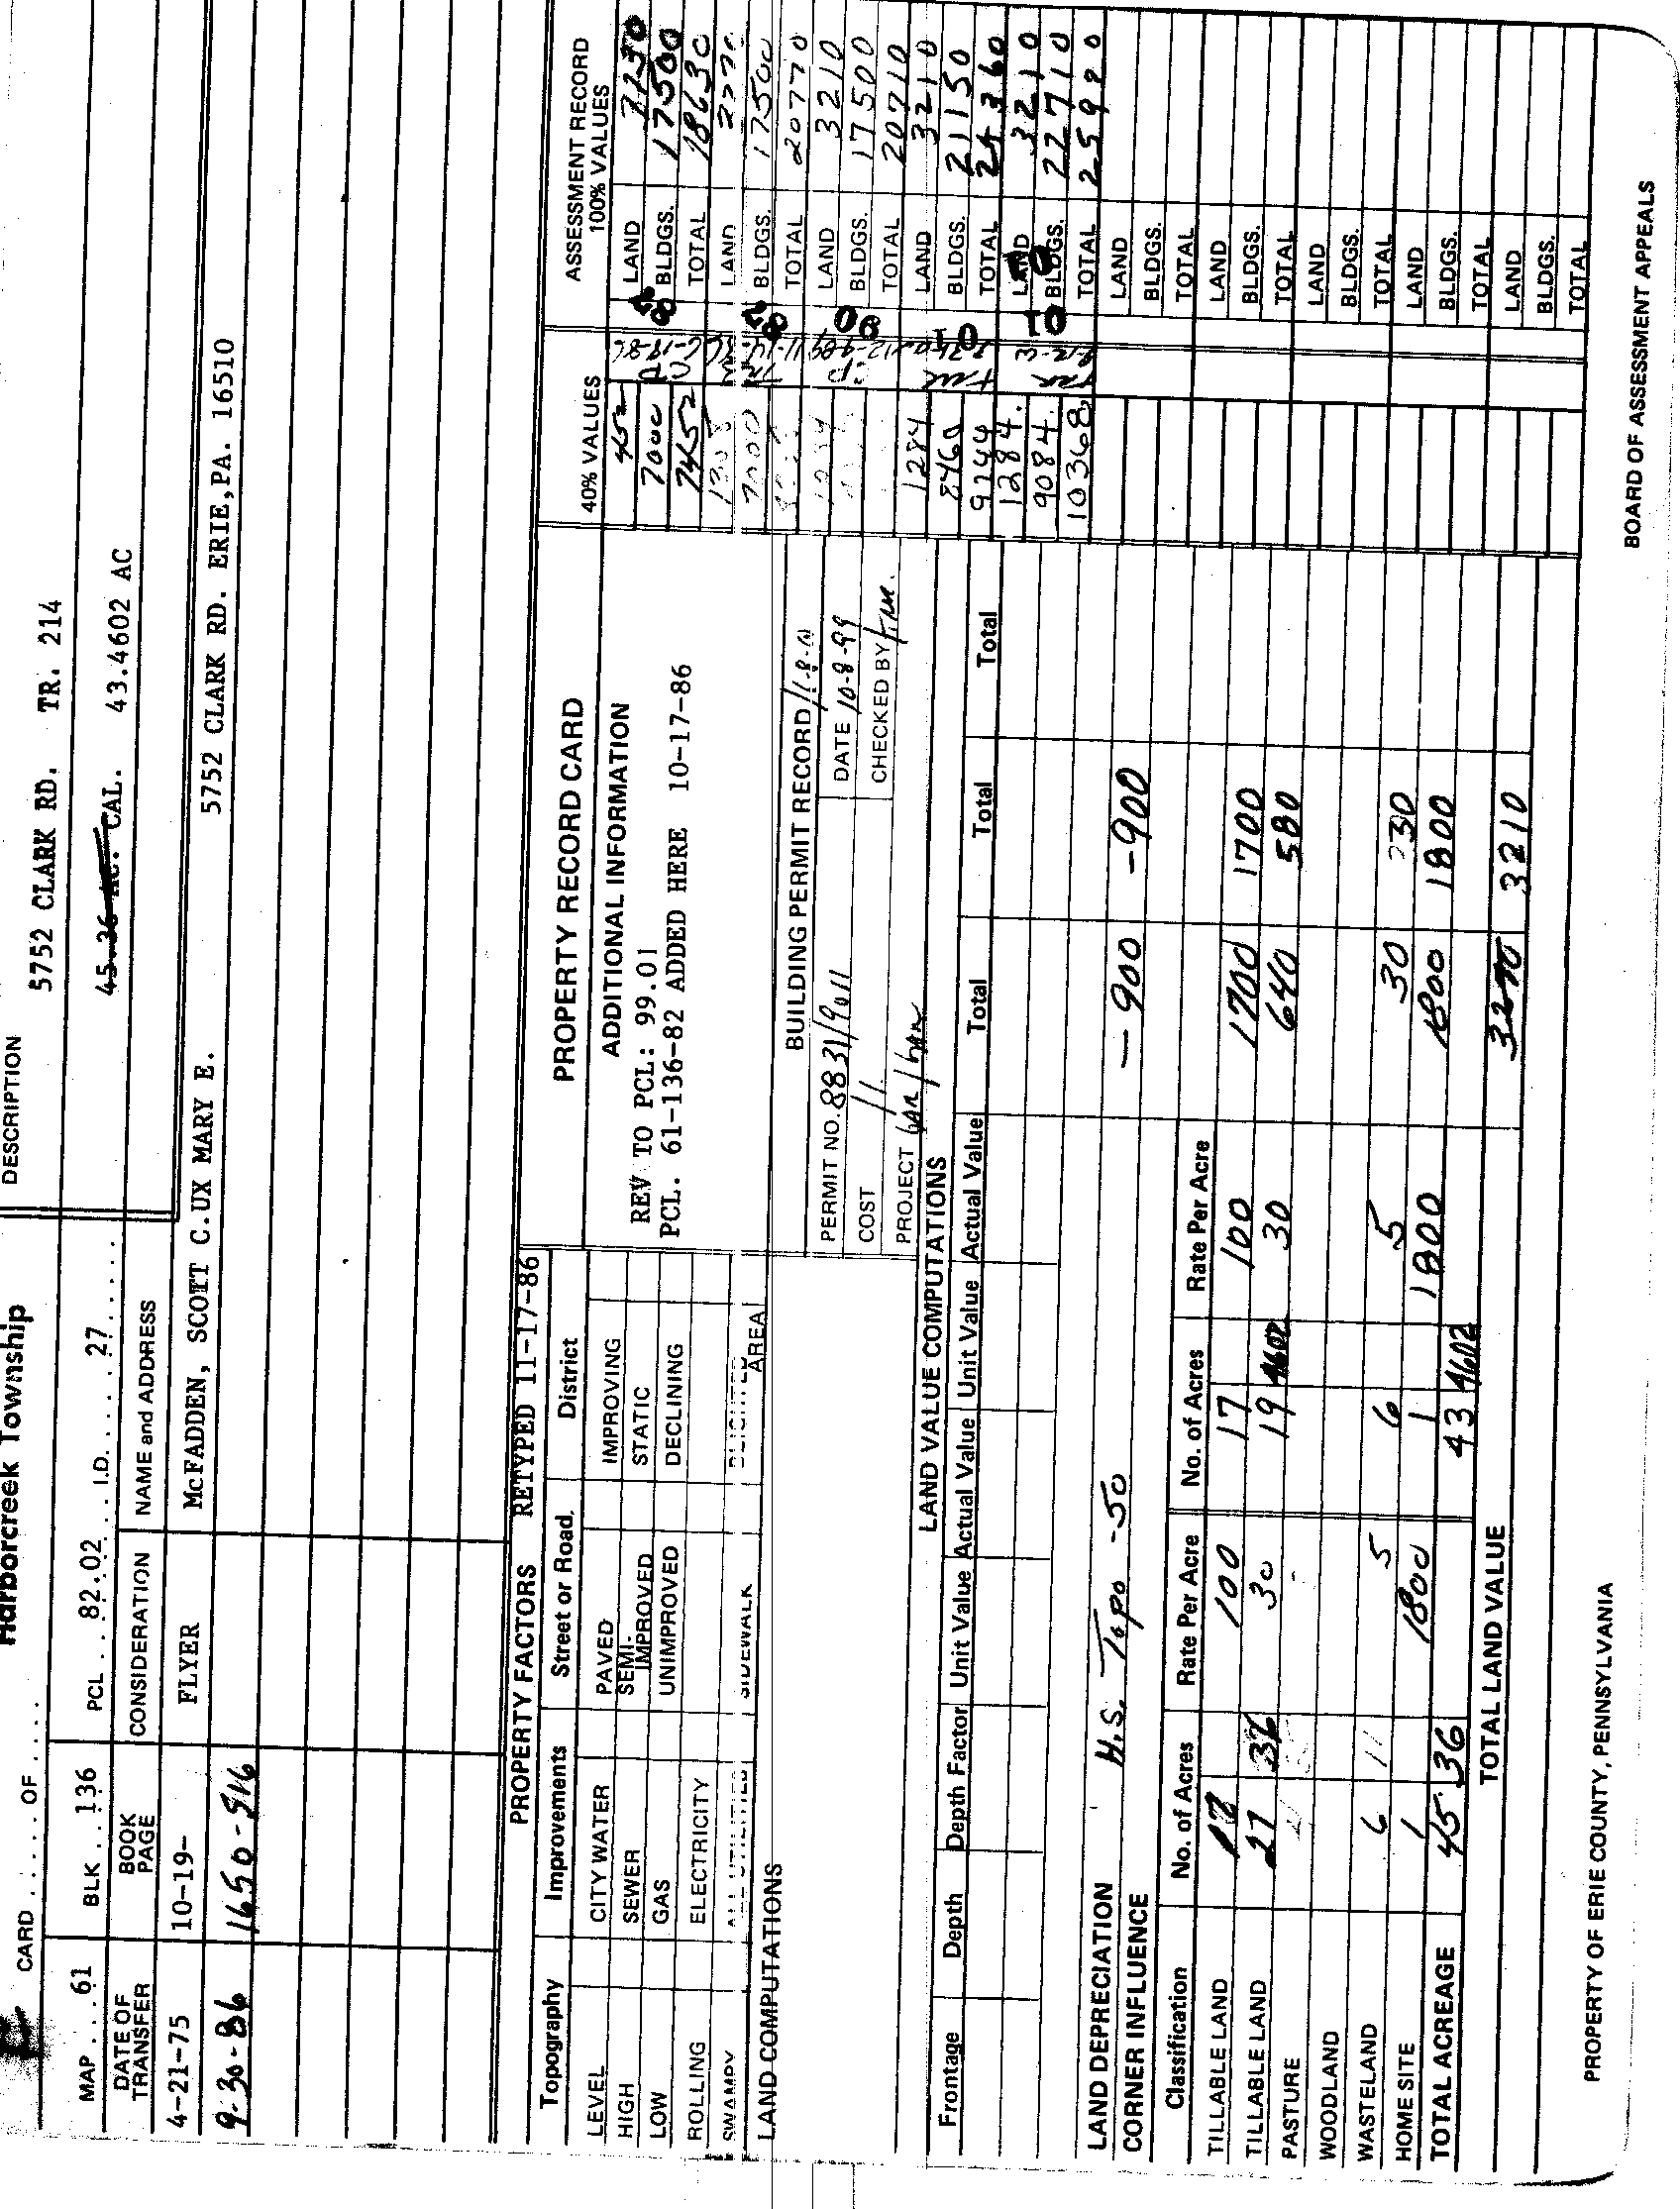 Harborcreek Township
CARD ...... OF ......
DESCRIPTION
MAP ... 61 BLK ... 136 PCL ... 82.02 ... I.D. ... 27 ...
5752 CLARK RD. TR. 214
DATE OF TRANSFER
BOOK PAGE
CONSIDERATION
NAME and ADDRESS
45.36 AC. CAL. 43.4602 AC
4-21-75 10-19- FLYER McFADDEN, SCOTT C.UX MARY E. 5752 CLARK RD. ERIE,PA. 16510
9-30-86 1650-516
PROPERTY FACTORS RETYPED 11-17-86
Topography Improvements Street or Road District
LEVEL CITY WATER PAVED IMPROVING
HIGH SEWER SEMI-IMPROVED STATIC
LOW GAS UNIMPROVED DECLINING
ROLLING ELECTRICITY
SWAMPY ALL UTILITIES SIDEWALK BLIGHTED AREA
PROPERTY RECORD CARD
ADDITIONAL INFORMATION
REV TO PCL: 99.01
PCL. 61-136-82 ADDED HERE 10-17-86
LAND COMPUTATIONS
BUILDING PERMIT RECORD
PERMIT NO. 8831/9011 DATE 10-8-99
COST
PROJECT CHECKED BY
LAND VALUE COMPUTATIONS
Frontage Depth Depth Factor Unit Value Actual Value Unit Value Actual Value Total Total Total
LAND DEPRECIATION
CORNER INFLUENCE H.S. Topo -50 -900 -900
Classification No. of Acres Rate Per Acre No. of Acres Rate Per Acre
TILLABLE LAND 17 100 17 100 1700 1700
TILLABLE LAND 21 36 30 19 4602 30 640 580
PASTURE
WOODLAND
WASTELAND 6 5 6 5 30 30
HOME SITE 1 1800 1 1800 1800 1800
TOTAL ACREAGE 45.36 43 4602
TOTAL LAND VALUE 3270 3210
40% VALUES
ASSESSMENT RECORD
100% VALUES
452 LAND
7000 BLDGS. 17500
7452 TOTAL 18630
LAND
7000 BLDGS. 17500
TOTAL 20770
LAND 3210
BLDGS. 17500
TOTAL 20710
1284 LAND 3210
8460 BLDGS. 21150
9744 TOTAL 24360
1284 LAND 3210
9084 BLDGS. 22710
10368 TOTAL 25920
LAND
BLDGS.
TOTAL
LAND
BLDGS.
TOTAL
LAND
BLDGS.
TOTAL
LAND
BLDGS.
TOTAL
LAND
BLDGS.
TOTAL
PROPERTY OF ERIE COUNTY, PENNSYLVANIA
BOARD OF ASSESSMENT APPEALS